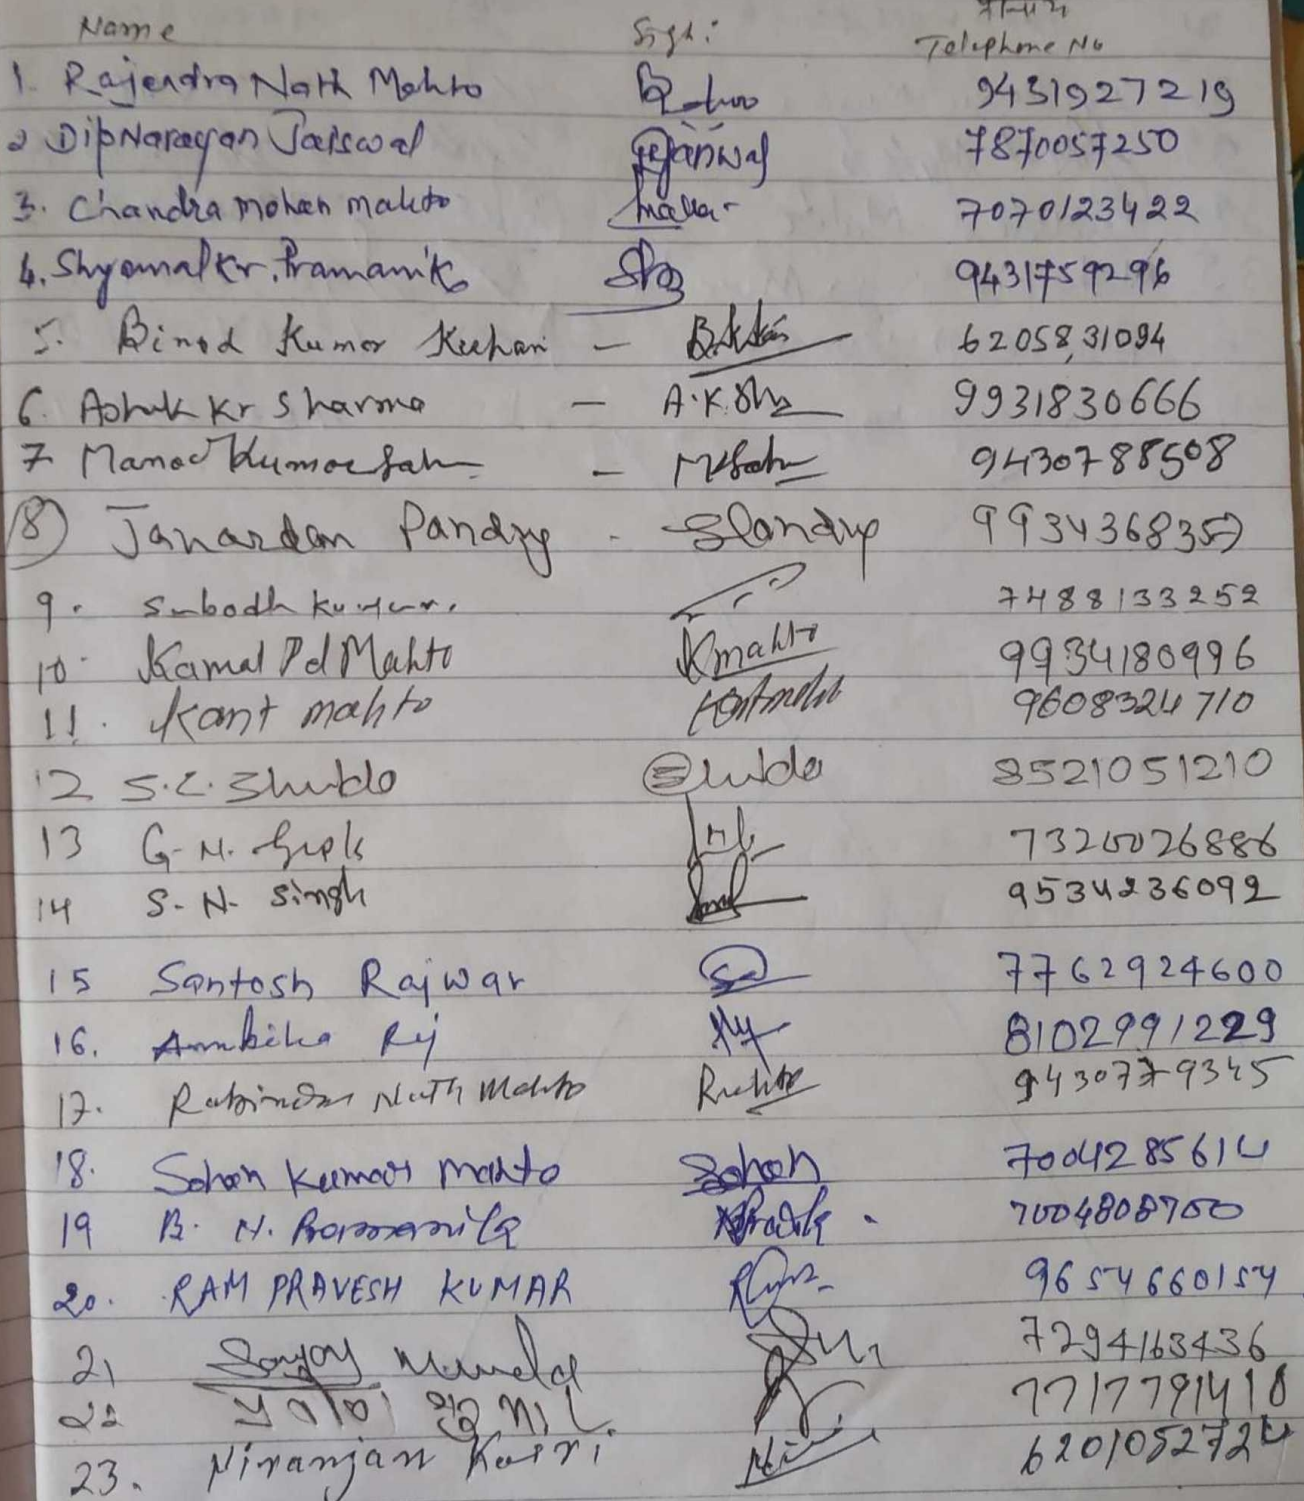 Name Sign: Telephone No
1. Rajendra Nath Mahto 9431927219
2 Dip Narayan Jaiswal Jaiswal 7870057250
3. Chandra mohan mahto 7070123422
4. Shyamal Kr. Pramanik 9431759296
5. Binod Kumar - 6205831094
6. Ashok Kr Sharma - A.K. Sha 9931830666
7 Manod Kumar Sah - MKSah 9430788508
8 Janardan Pandey - 993436835
9. Subodh Kumar. 7488133252
10 Kamal Pd Mahto Kmahto 9934180996
11. Kant mahto Kantmahto 9608324710
12 8521051210
13 G. N. 7320026886
14 S. N. Singh 9534236092
15 Santosh Rajwar 7762924600
16. Ambika 8102991229
17. Rabindra Nath Mahto 9430779345
18. Sohan Kumar Mahto Sohan 7004285614
19 B. N. Pramanik 7004808700
20. RAM PRAVESH KUMAR 9654660154
21 Sanjoy Munda 7294163436
22 7717791410
23. Niranjan 6201052724